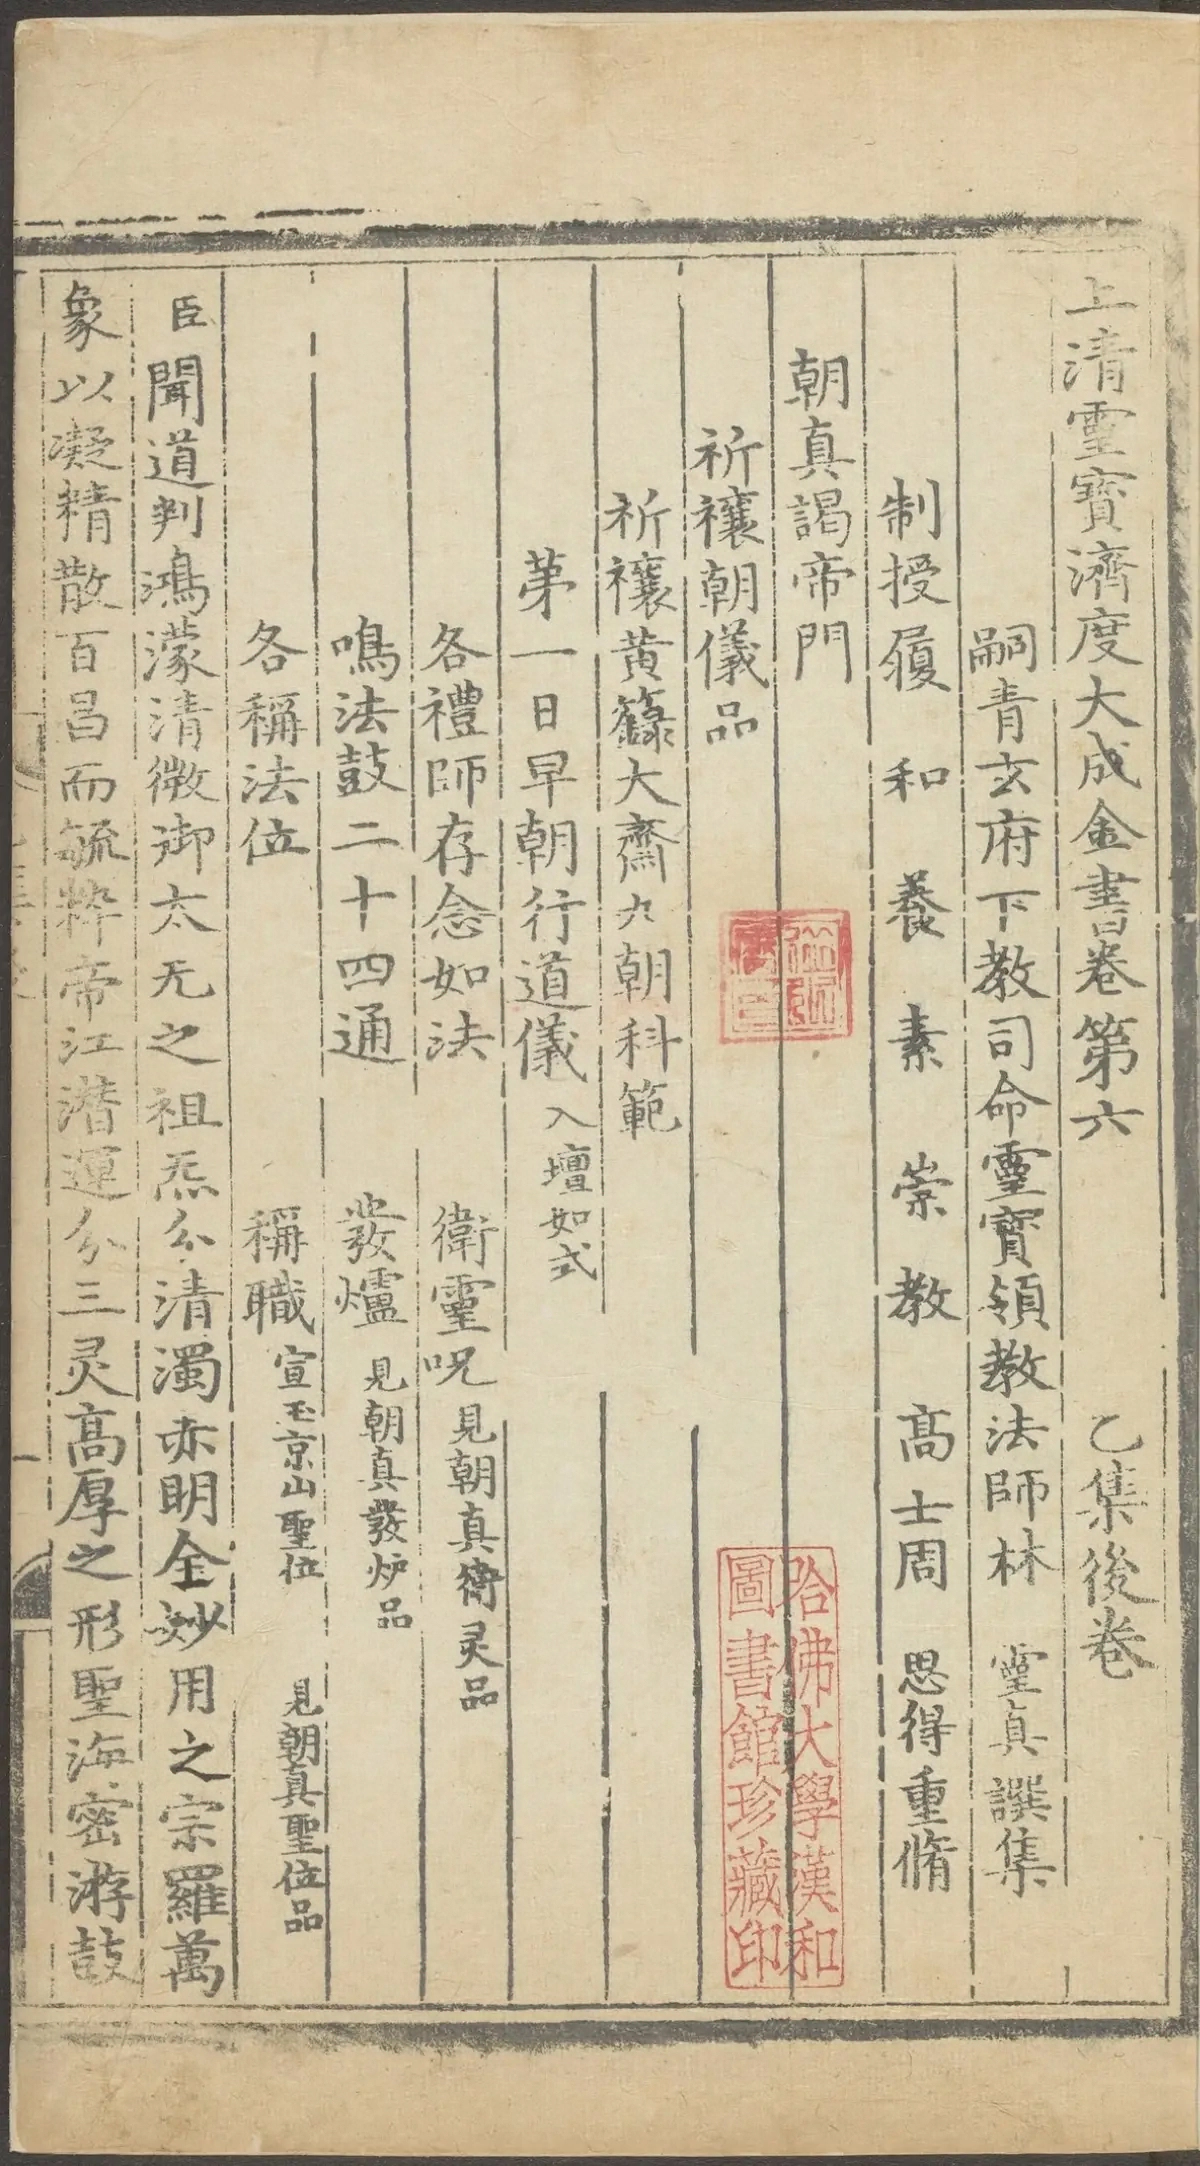 上清靈寶濟度大成金書卷第六 乙集後卷
嗣青玄府下教司命靈寶領教法師林 靈真 譔集
制授履和養素崇教高士周 思得重脩
朝真謁帝門
祈禳朝儀品
祈禳黄籙大齋九朝科範
苐一日早朝行道儀 入壇如式
各禮師存念如法 衛靈呪 見朝真衛灵品
鳴法鼓二十四通 發爐 見朝真發炉品
各稱法位 稱職 宣玉京山聖位 見朝真聖位品
臣聞道判鴻濛清微御太无之祖炁分清濁赤明全妙用之宗羅萬
象以凝精散百昌而毓粹帝江潜運分三灵高厚之形聖海密游鼓
哈佛大學漢和
圖書館珍藏印